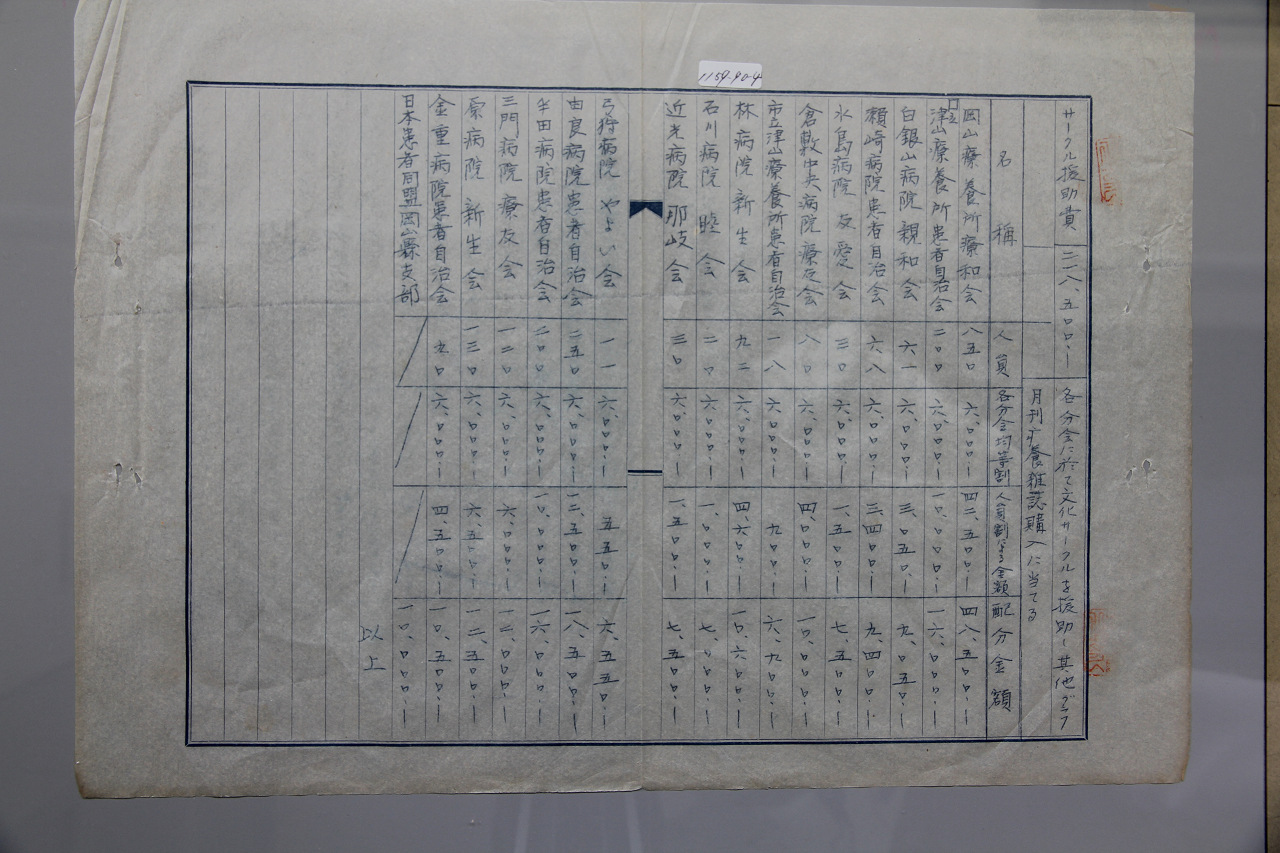 1159-90-4
サークル援助費 二一八、五〇〇.― 各分会に於て文化サークルを援助し其他グラフ
月刊療養雑誌購入に当てる
名稱 人員 各分会均等割 人員割による金額 配分金額
岡山療養所療和会 八五〇 六、〇〇〇.― 四二、五〇〇.― 四八、五〇〇.―
国立津山療養所患者自治会 二〇〇 六、〇〇〇.― 一〇、〇〇〇.― 一六、〇〇〇.―
白銀山病院親和会 六一 六、〇〇〇.― 三、〇五〇.― 九、〇五〇.―
病院患者自治会 六八 六、〇〇〇.― 三、四〇〇.― 九、四〇〇.―
水島病院友愛会 三〇 六、〇〇〇.― 一、五〇〇.― 七、五〇〇.―
倉敷中央病院療友会 八〇 六、〇〇〇.― 四、〇〇〇.― 一〇、〇〇〇.―
市立津山療養所患者自治会 一八 六、〇〇〇.― 九〇〇.― 六、九〇〇.―
林病院新生会 九二 六、〇〇〇.― 四、六〇〇.― 一〇、六〇〇.―
石川病院睦会 二〇 六、〇〇〇.― 一、〇〇〇.― 七、〇〇〇.―
近光病院那岐会 三〇 六、〇〇〇.― 一、五〇〇.― 七、五〇〇.―
弓狩病院やよい会 一一 六、〇〇〇.― 五五〇.― 六、五五〇.―
由良病院患者自治会 二五〇 六、〇〇〇.― 一二、五〇〇.― 一八、五〇〇.―
半田病院患者自治会 二〇〇 六、〇〇〇.― 一〇、〇〇〇.― 一六、〇〇〇.―
三門病院療友会 一二〇 六、〇〇〇.― 六、〇〇〇.― 一二、〇〇〇.―
原病院新生会 一三〇 六、〇〇〇.― 六、五〇〇.― 一二、五〇〇.―
金重病院患者自治会 九〇 六、〇〇〇.― 四、五〇〇.― 一〇、五〇〇.―
日本患者同盟岡山縣支部 一〇、〇〇〇.―
以上